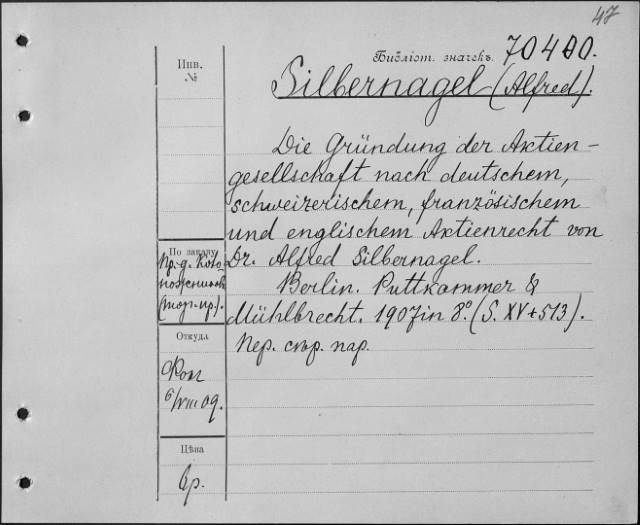 47
Библіот. значекъ. 70400.
Инв.
№
Silbernagel (Alfred).
Die Gründung der Aktien-
gesellschaft nach deutschem,
schweizerischem, französischem
und englischem Aktienrecht von
Dr. Alfred Silbernagel.
Berlin. Puttkammer &
Mühlbrecht. 1907 in 8° (S. XV + 513).
Пер. стр. пар.
По заказу
Пр-д.
(торг. пр.).
Откуда
6/VIII 09.
Цѣна